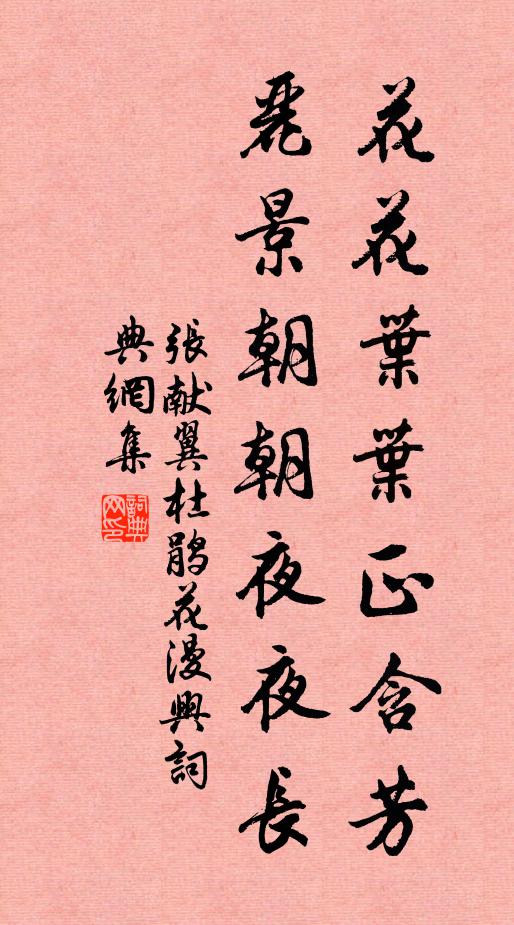 花花葉葉正含芳
麗景朝朝夜夜長
張献翼杜鹃花漫興詞
典網集
詞典
网印